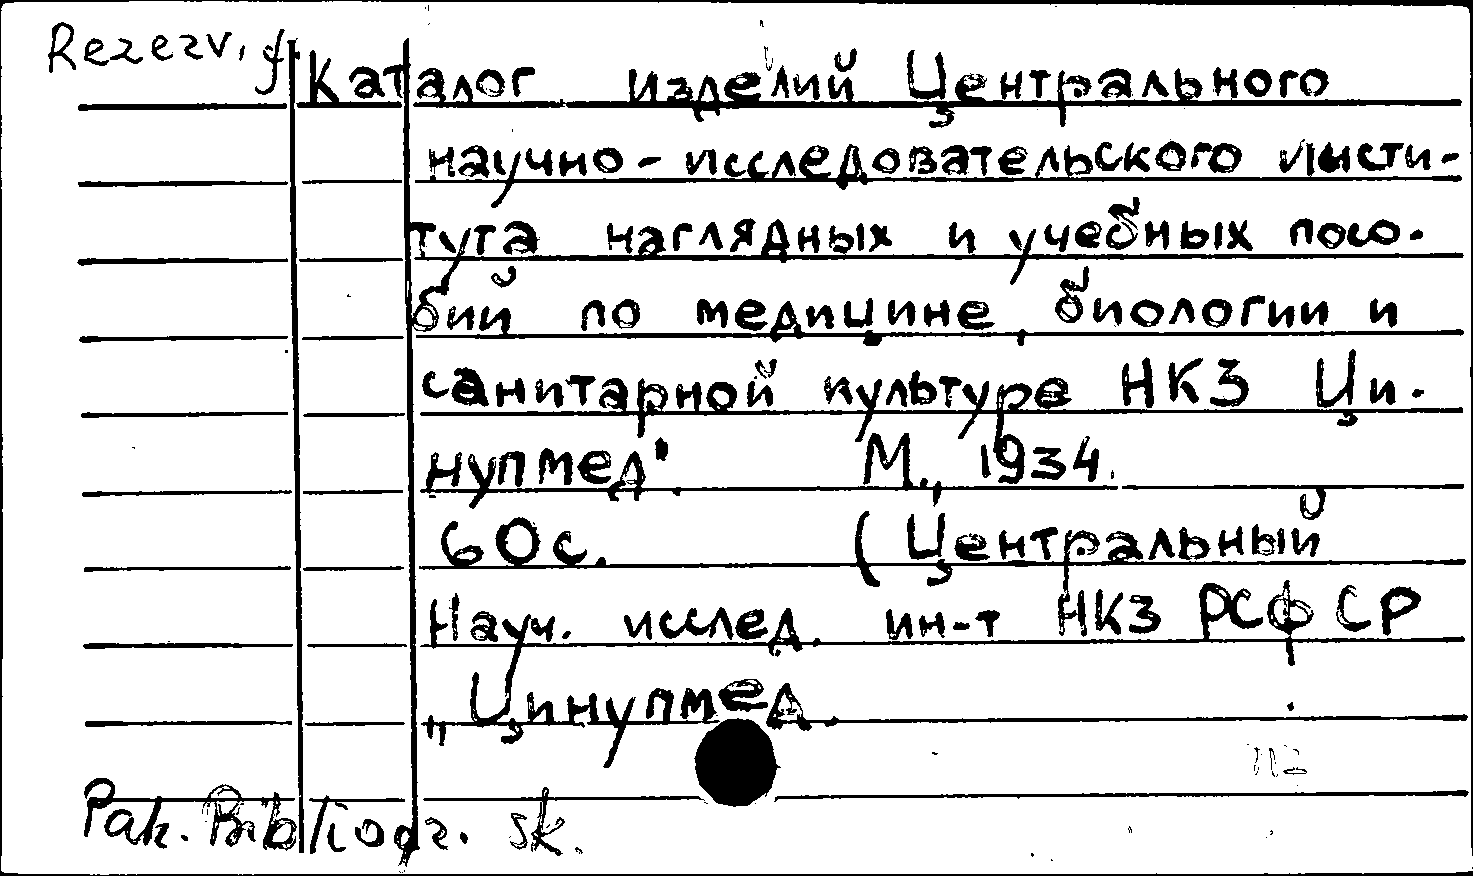 Rezerv. f.
Каталог изделий Центрального
научно-исследовательского инсти-
тута наглядных и учебных посо-
бий по медицине, биологии и
санитарной культуре НКЗ Ци-
нупмед". М., 1934.
60с. (Центральный
Науч. исслед. ин-т НКЗ РСФСР
„Цинупмед.
Pak. Bibliogr. sk.